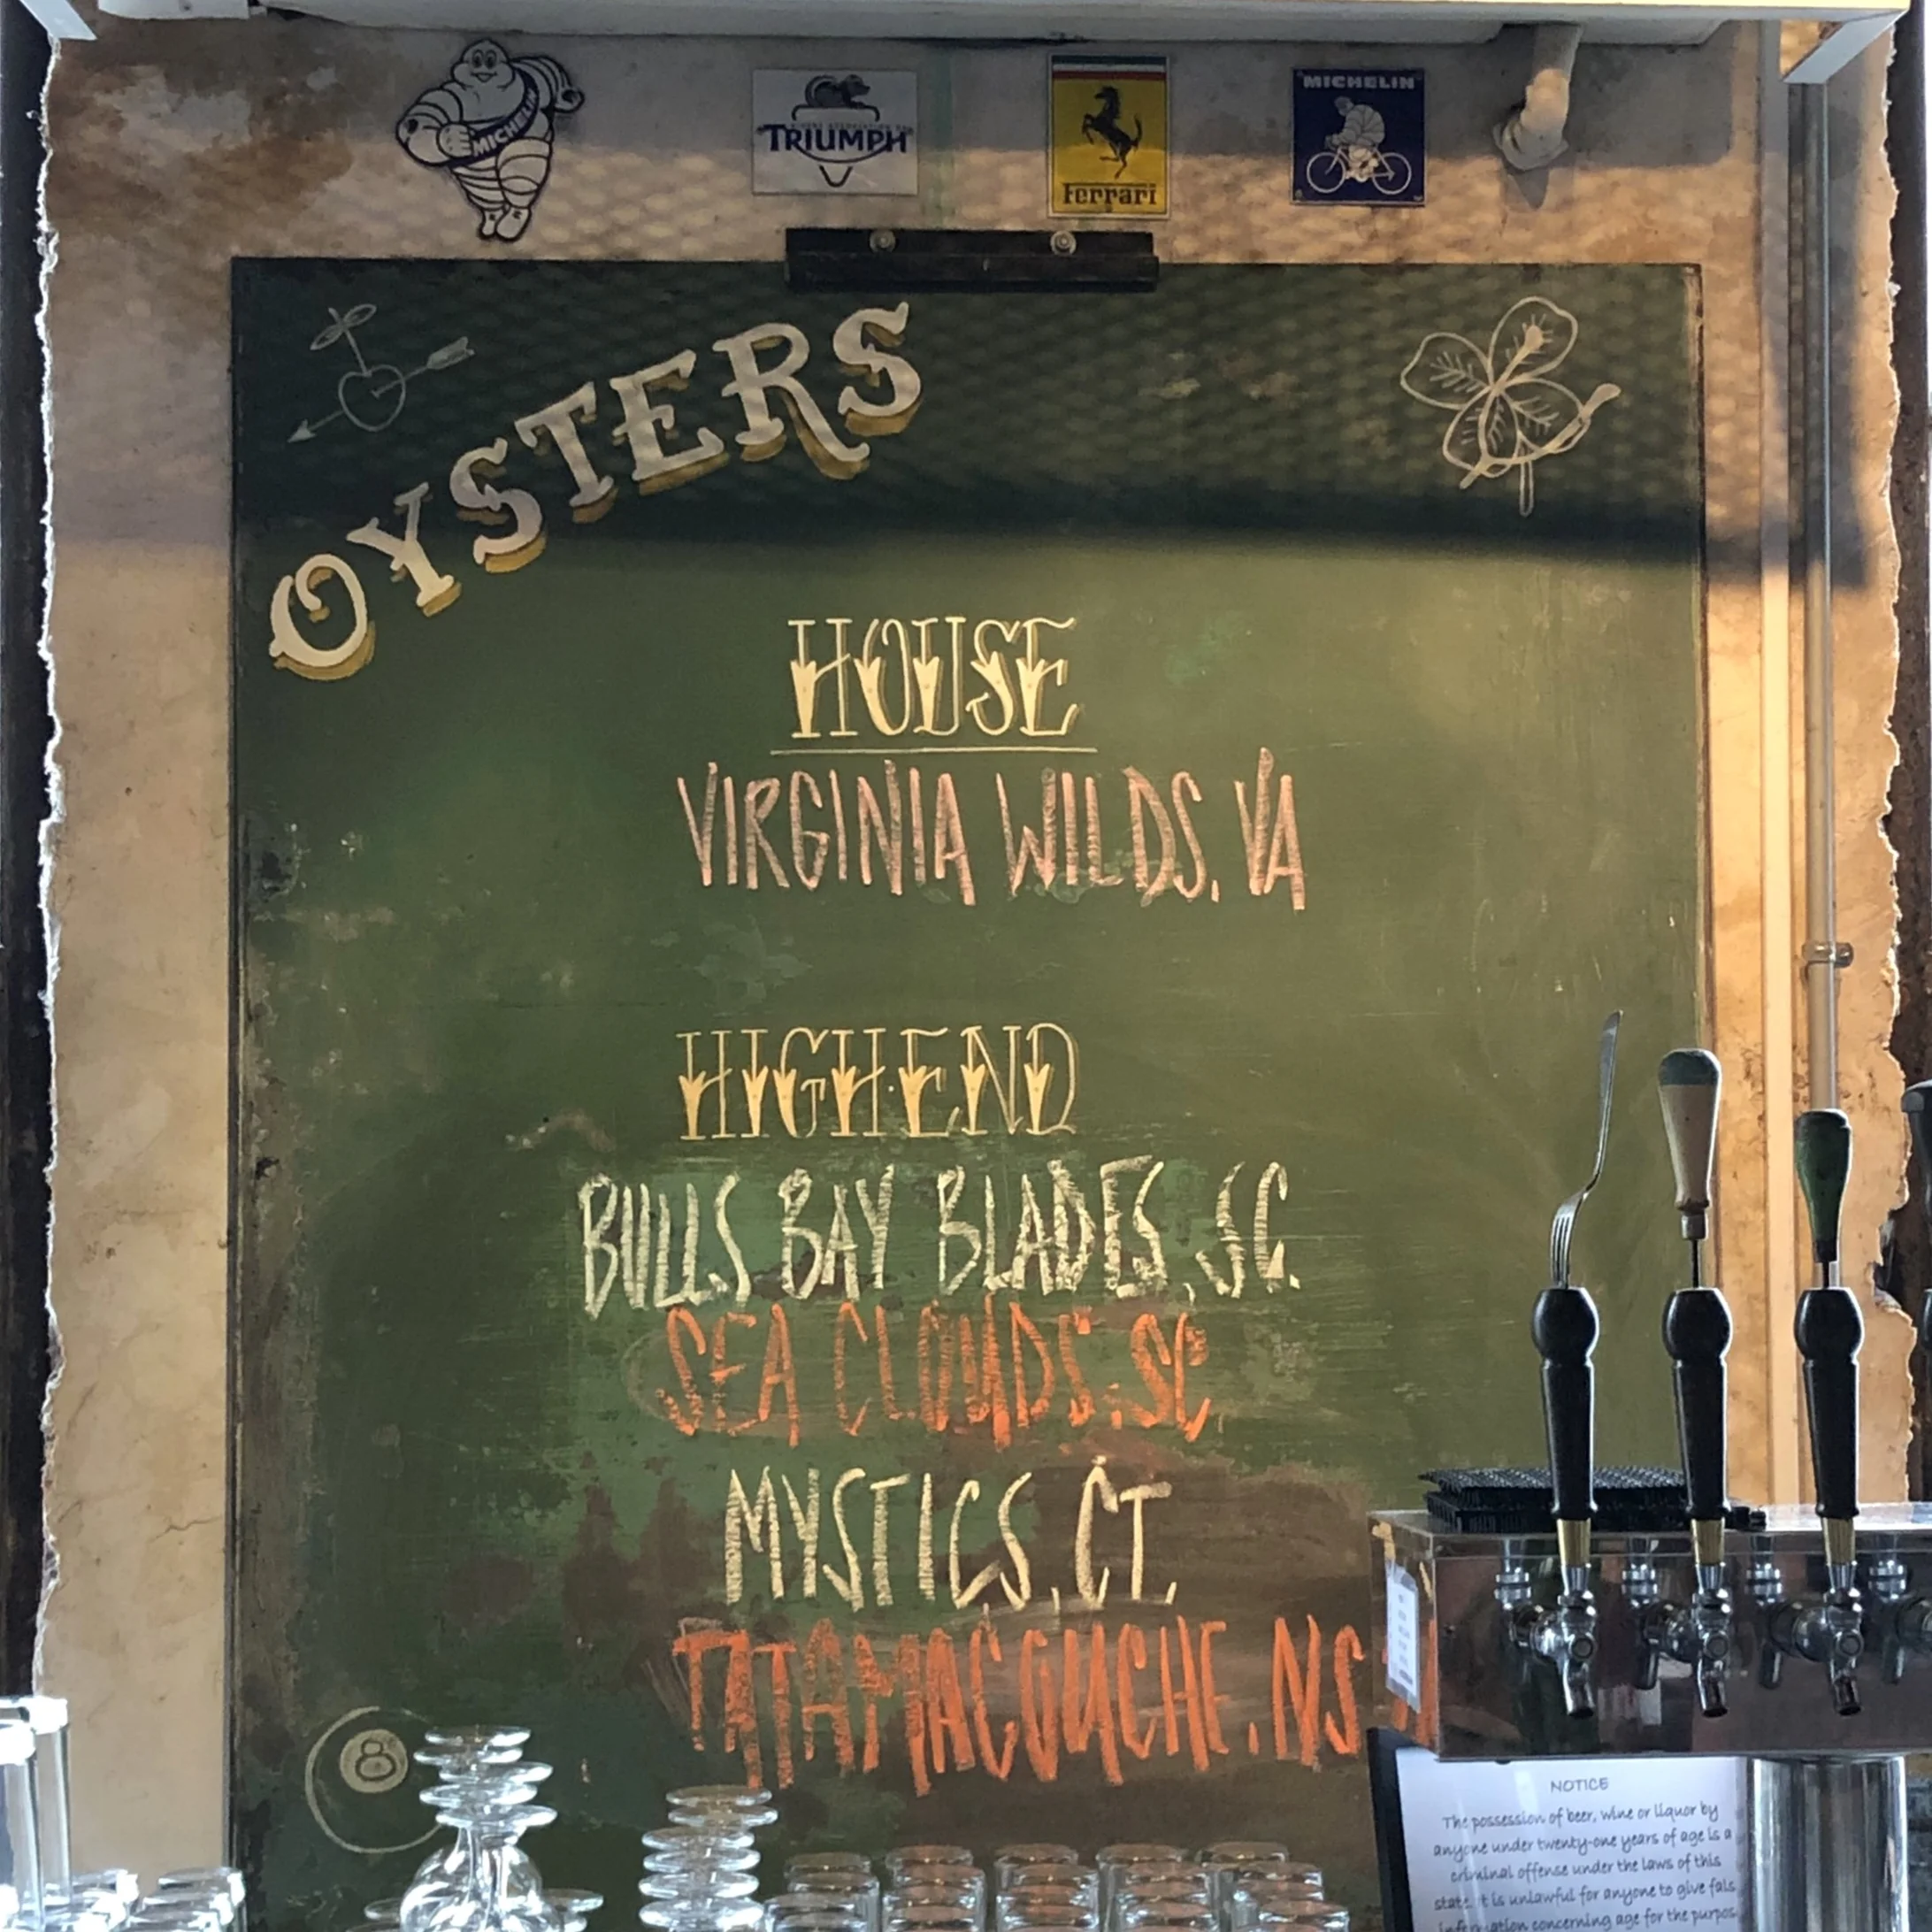 MICHELIN
TRIUMPH
Ferrari
MICHELIN
OYSTERS
HOUSE
VIRGINIA WILDS, VA
HIGH·END
BULLS BAY BLADES, SC.
SEA CLOUDS, SC
MYSTICS, CT.
TATAMACOUCHE, NS
8
NOTICE
The possession of beer, wine or liquor by
anyone under twenty-one years of age is a
criminal offense under the laws of this
state. It is unlawful for anyone to give fals
information concerning age for the purpos